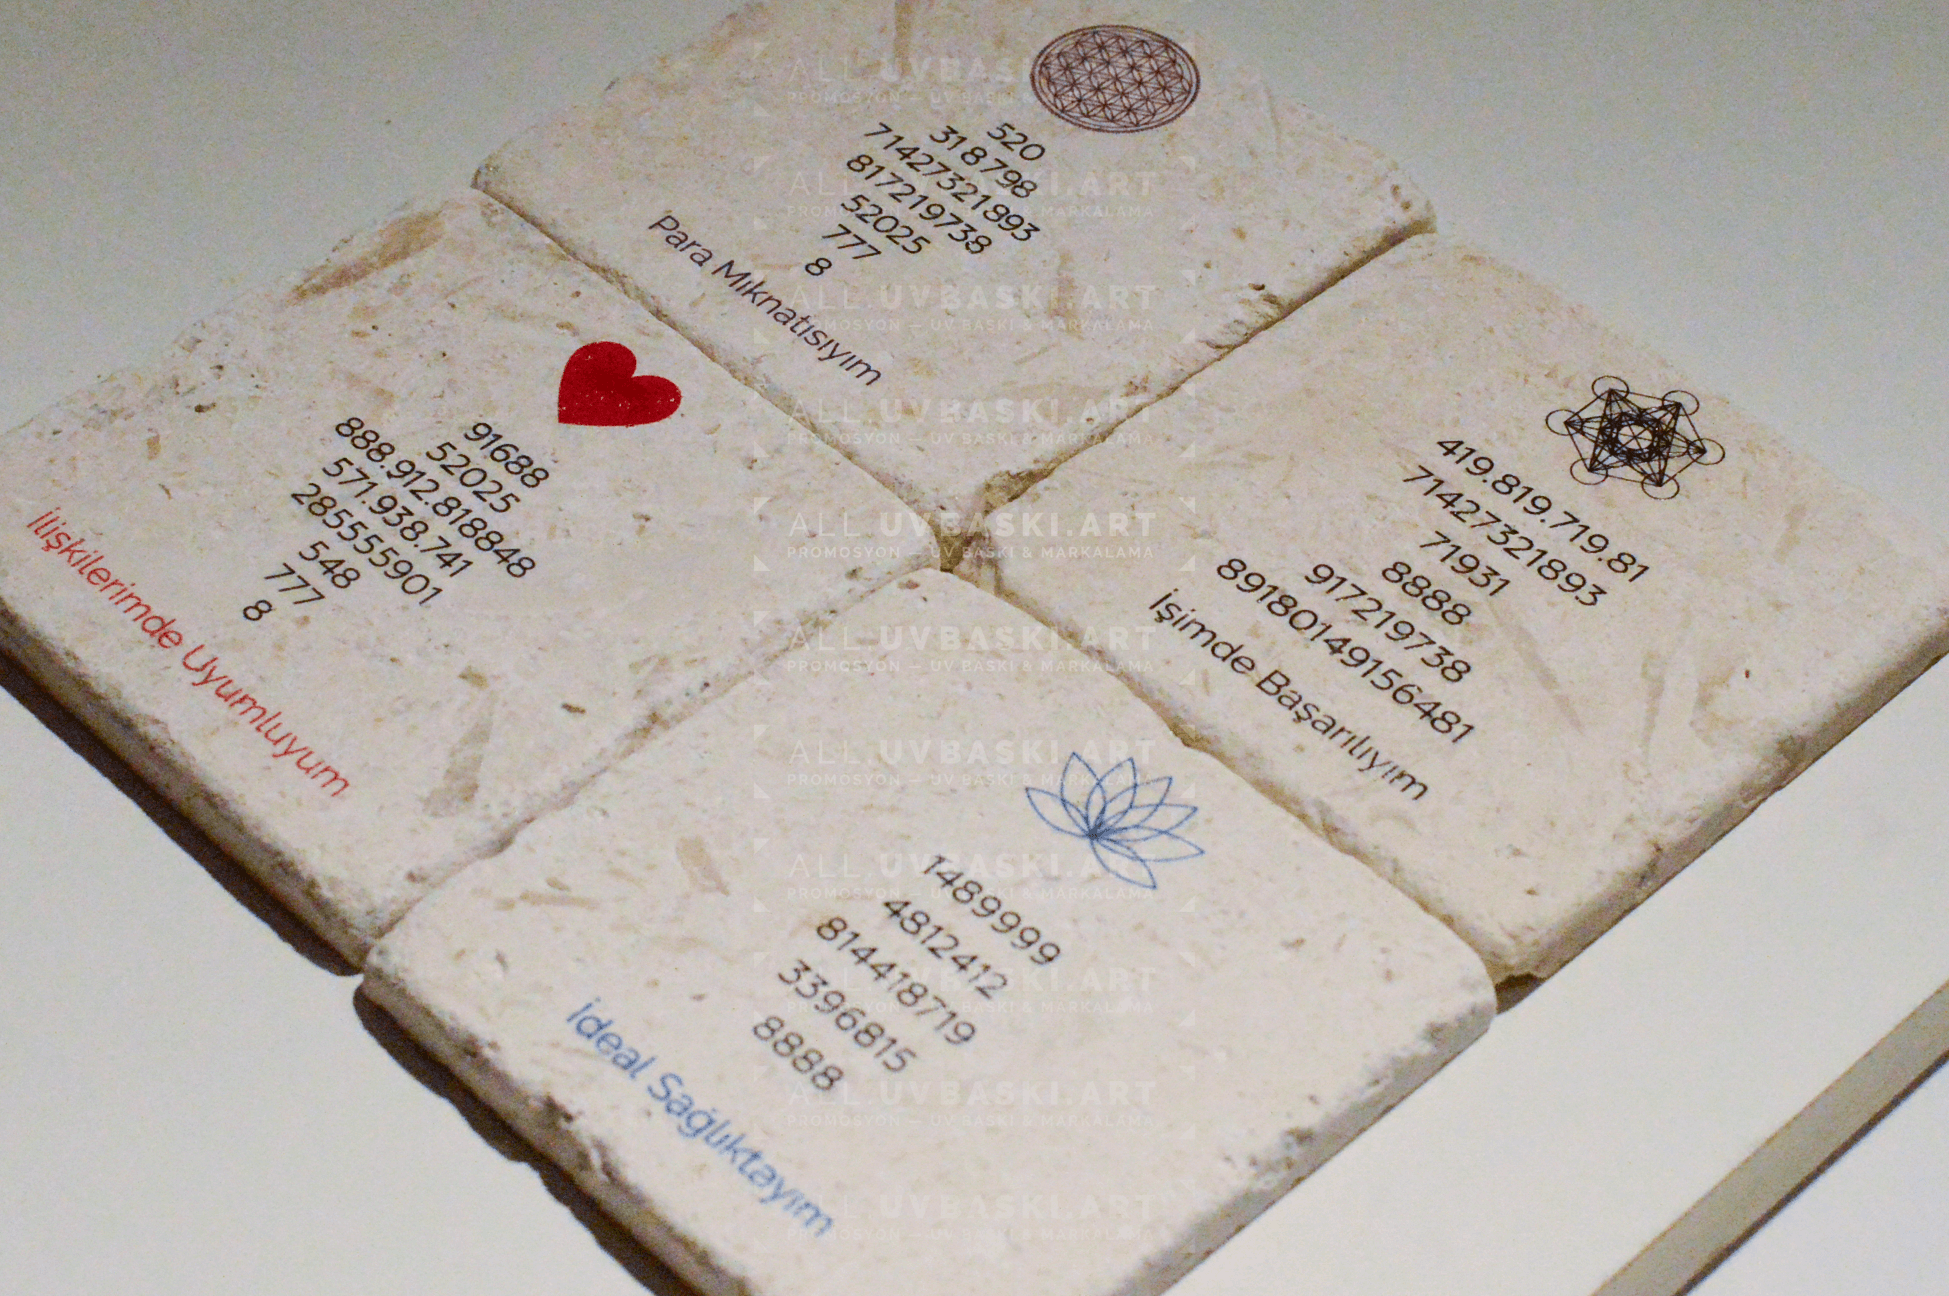 520
318798
71427321893
817219738
52025
777
8
Para Mıknatısıyım
91688
52025
888.912.818848
571.938.741
285555901
548
777
8
İlişkilerimde Uyumluyum
419.819.719.81
71427321893
71931
8888
917219738
891801491564​81
İşimde Başarılıyım
1489999
4812412
814418719
3396815
8888
İdeal Sağlıktayım
ALL.UVBASKI.ART
PROMOSYON — UV BASKI & MARKALAMA